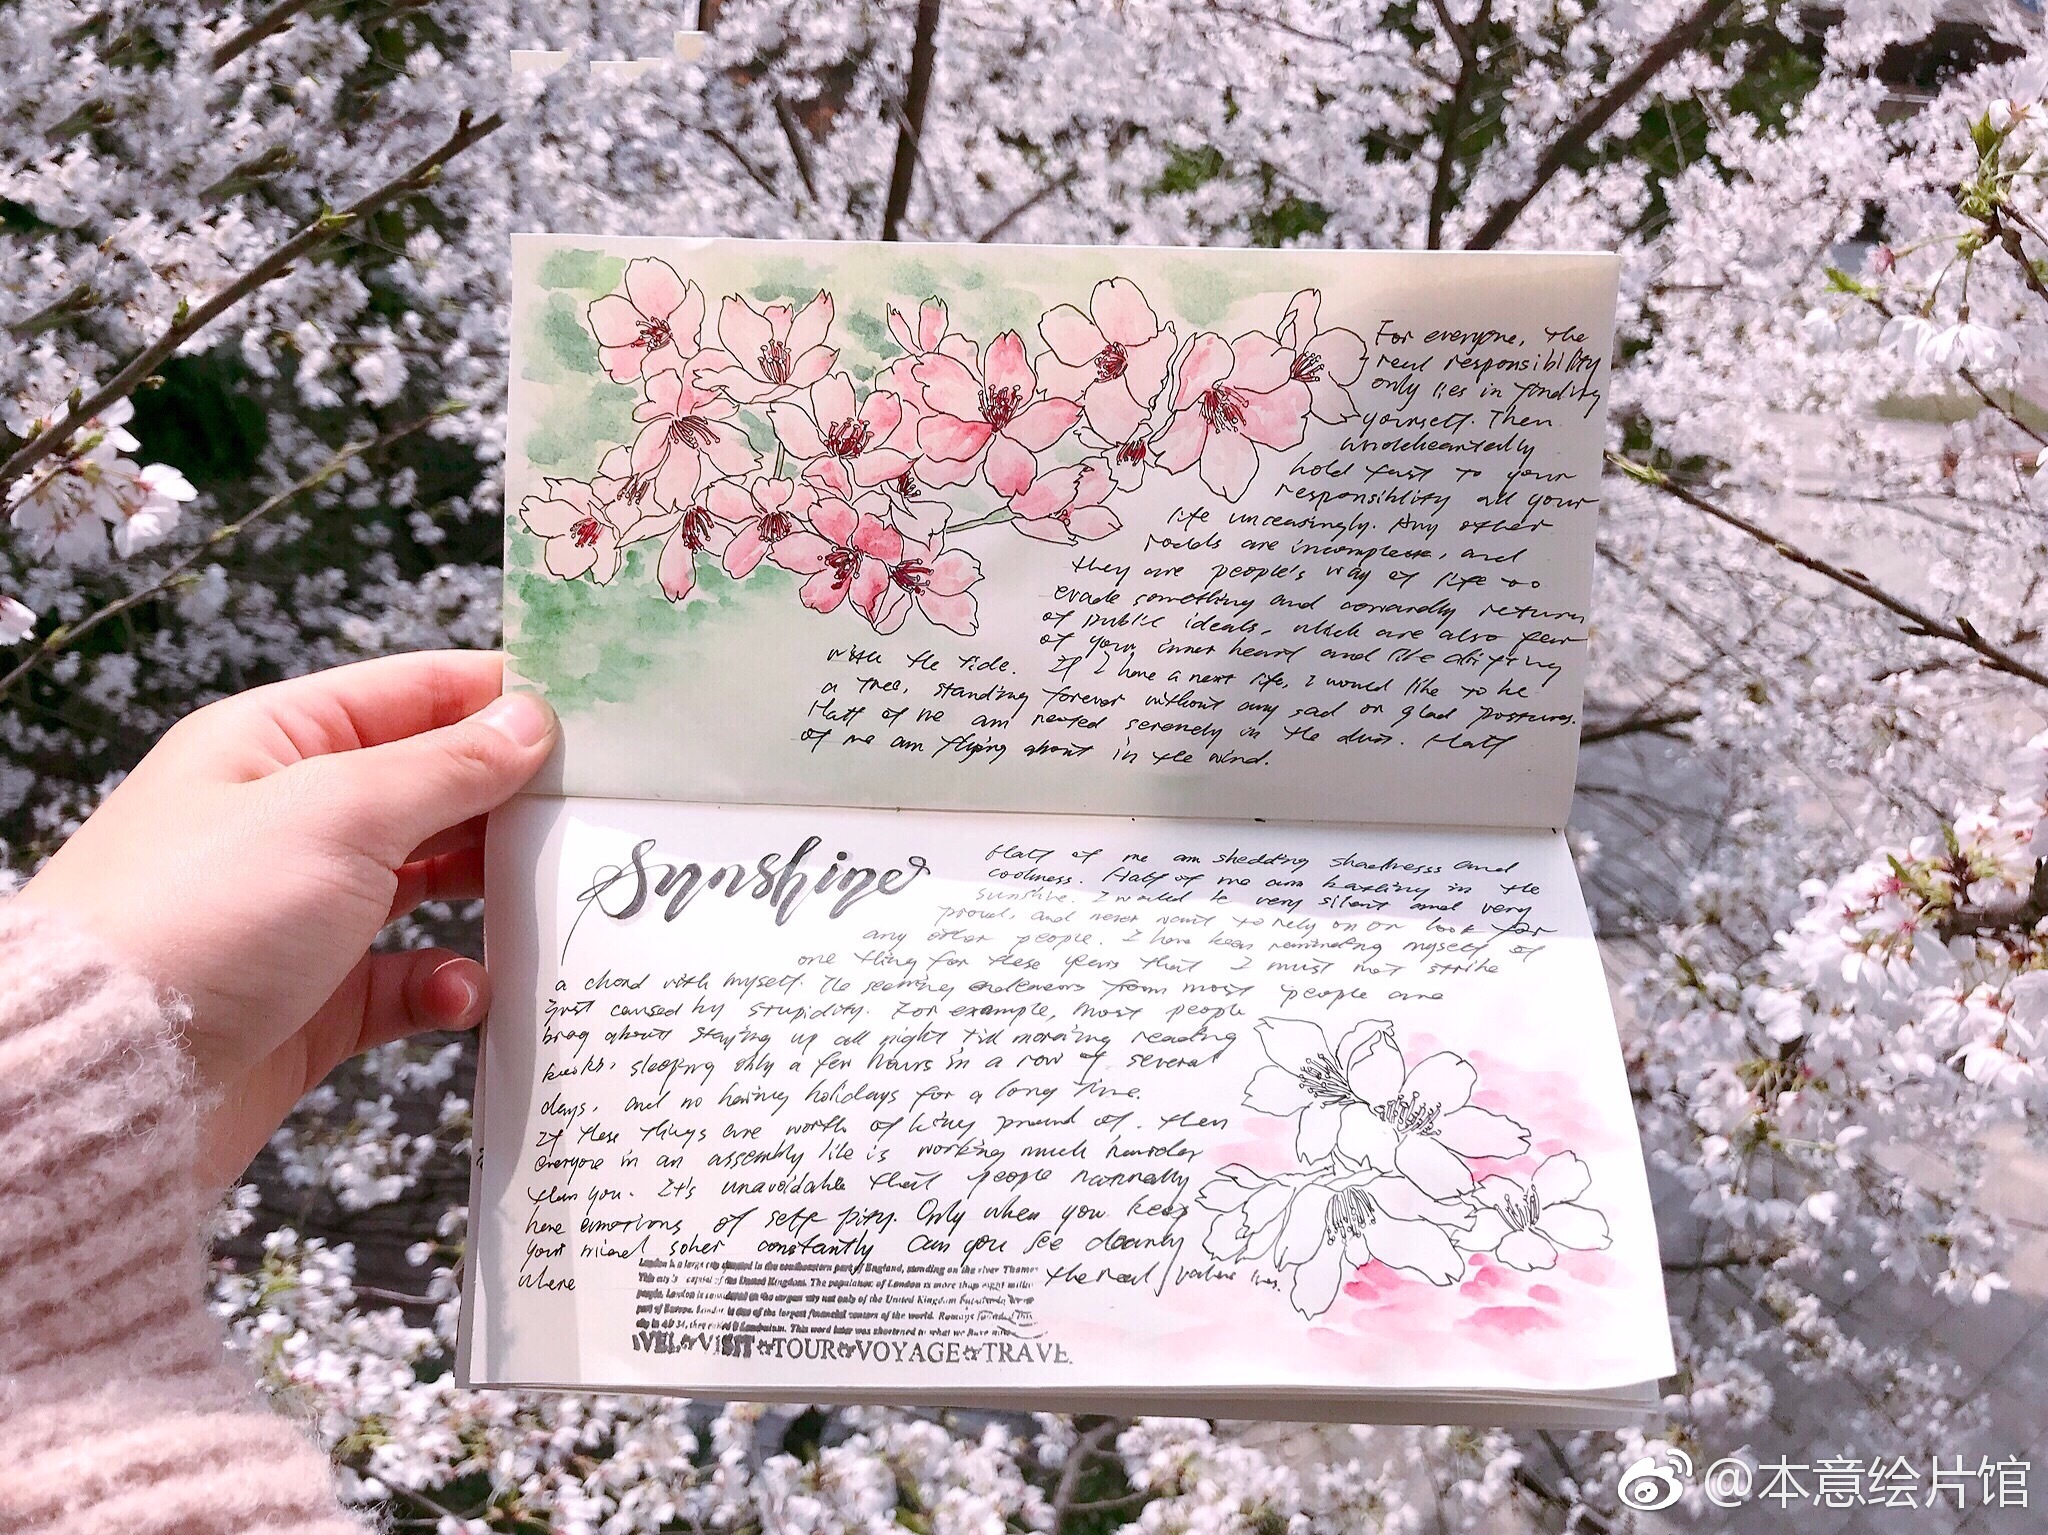 For everyone, the
real responsibility
only lies in finding
yourself. Then
wholeheartedly
hold fast to your
responsiblity all your
life unceasingly. Any other
roads are incomplete, and
they are people's way of life to
evade something and cowardly return
of public ideals, which are also fear
of your inner heart and like drifting
with the tide. If I have a next life, I would like to be
a tree, standing forever without any sad or glad postures.
Half of me am rested serenely in the dust. Half
of me am flying about in the wind.
Sunshine
Half of me am shedding and
coolness. Half of me am bathing in the
sunshine. I would be very silent and very
proud, and never want to rely on or look for
any other people. I have been reminding myself of
one thing for these years that I must not strike
a chord with myself. The seeming endeavors from most people are
just caused by stupidity. For example, most people
brag about staying up all night till morning reading
books, sleeping only a few hours in a row of several
days, and no having holidays for a long time.
If these things are worth of being proud of, then
everyone in an assembly line is working much harder
than you. It's unavoidable that people normally
have emotions of self pity. Only when you keep
your mind sober constantly can you see clearly
where the real value lies.
London is a large city situated in the southeastern part of England, standing on the river Thames
This city's capital of the United Kingdom. The population of London is more than eight million
people. London is considered as the largest city not only of the United Kingdom but
part of Europe. London is one of the largest financial centers of the world. Romans founded this
city in AD 34, they called it Londinium. This word later was shortened to what we have now
VEL VISIT TOUR VOYAGE TRAVE
@本意绘片馆